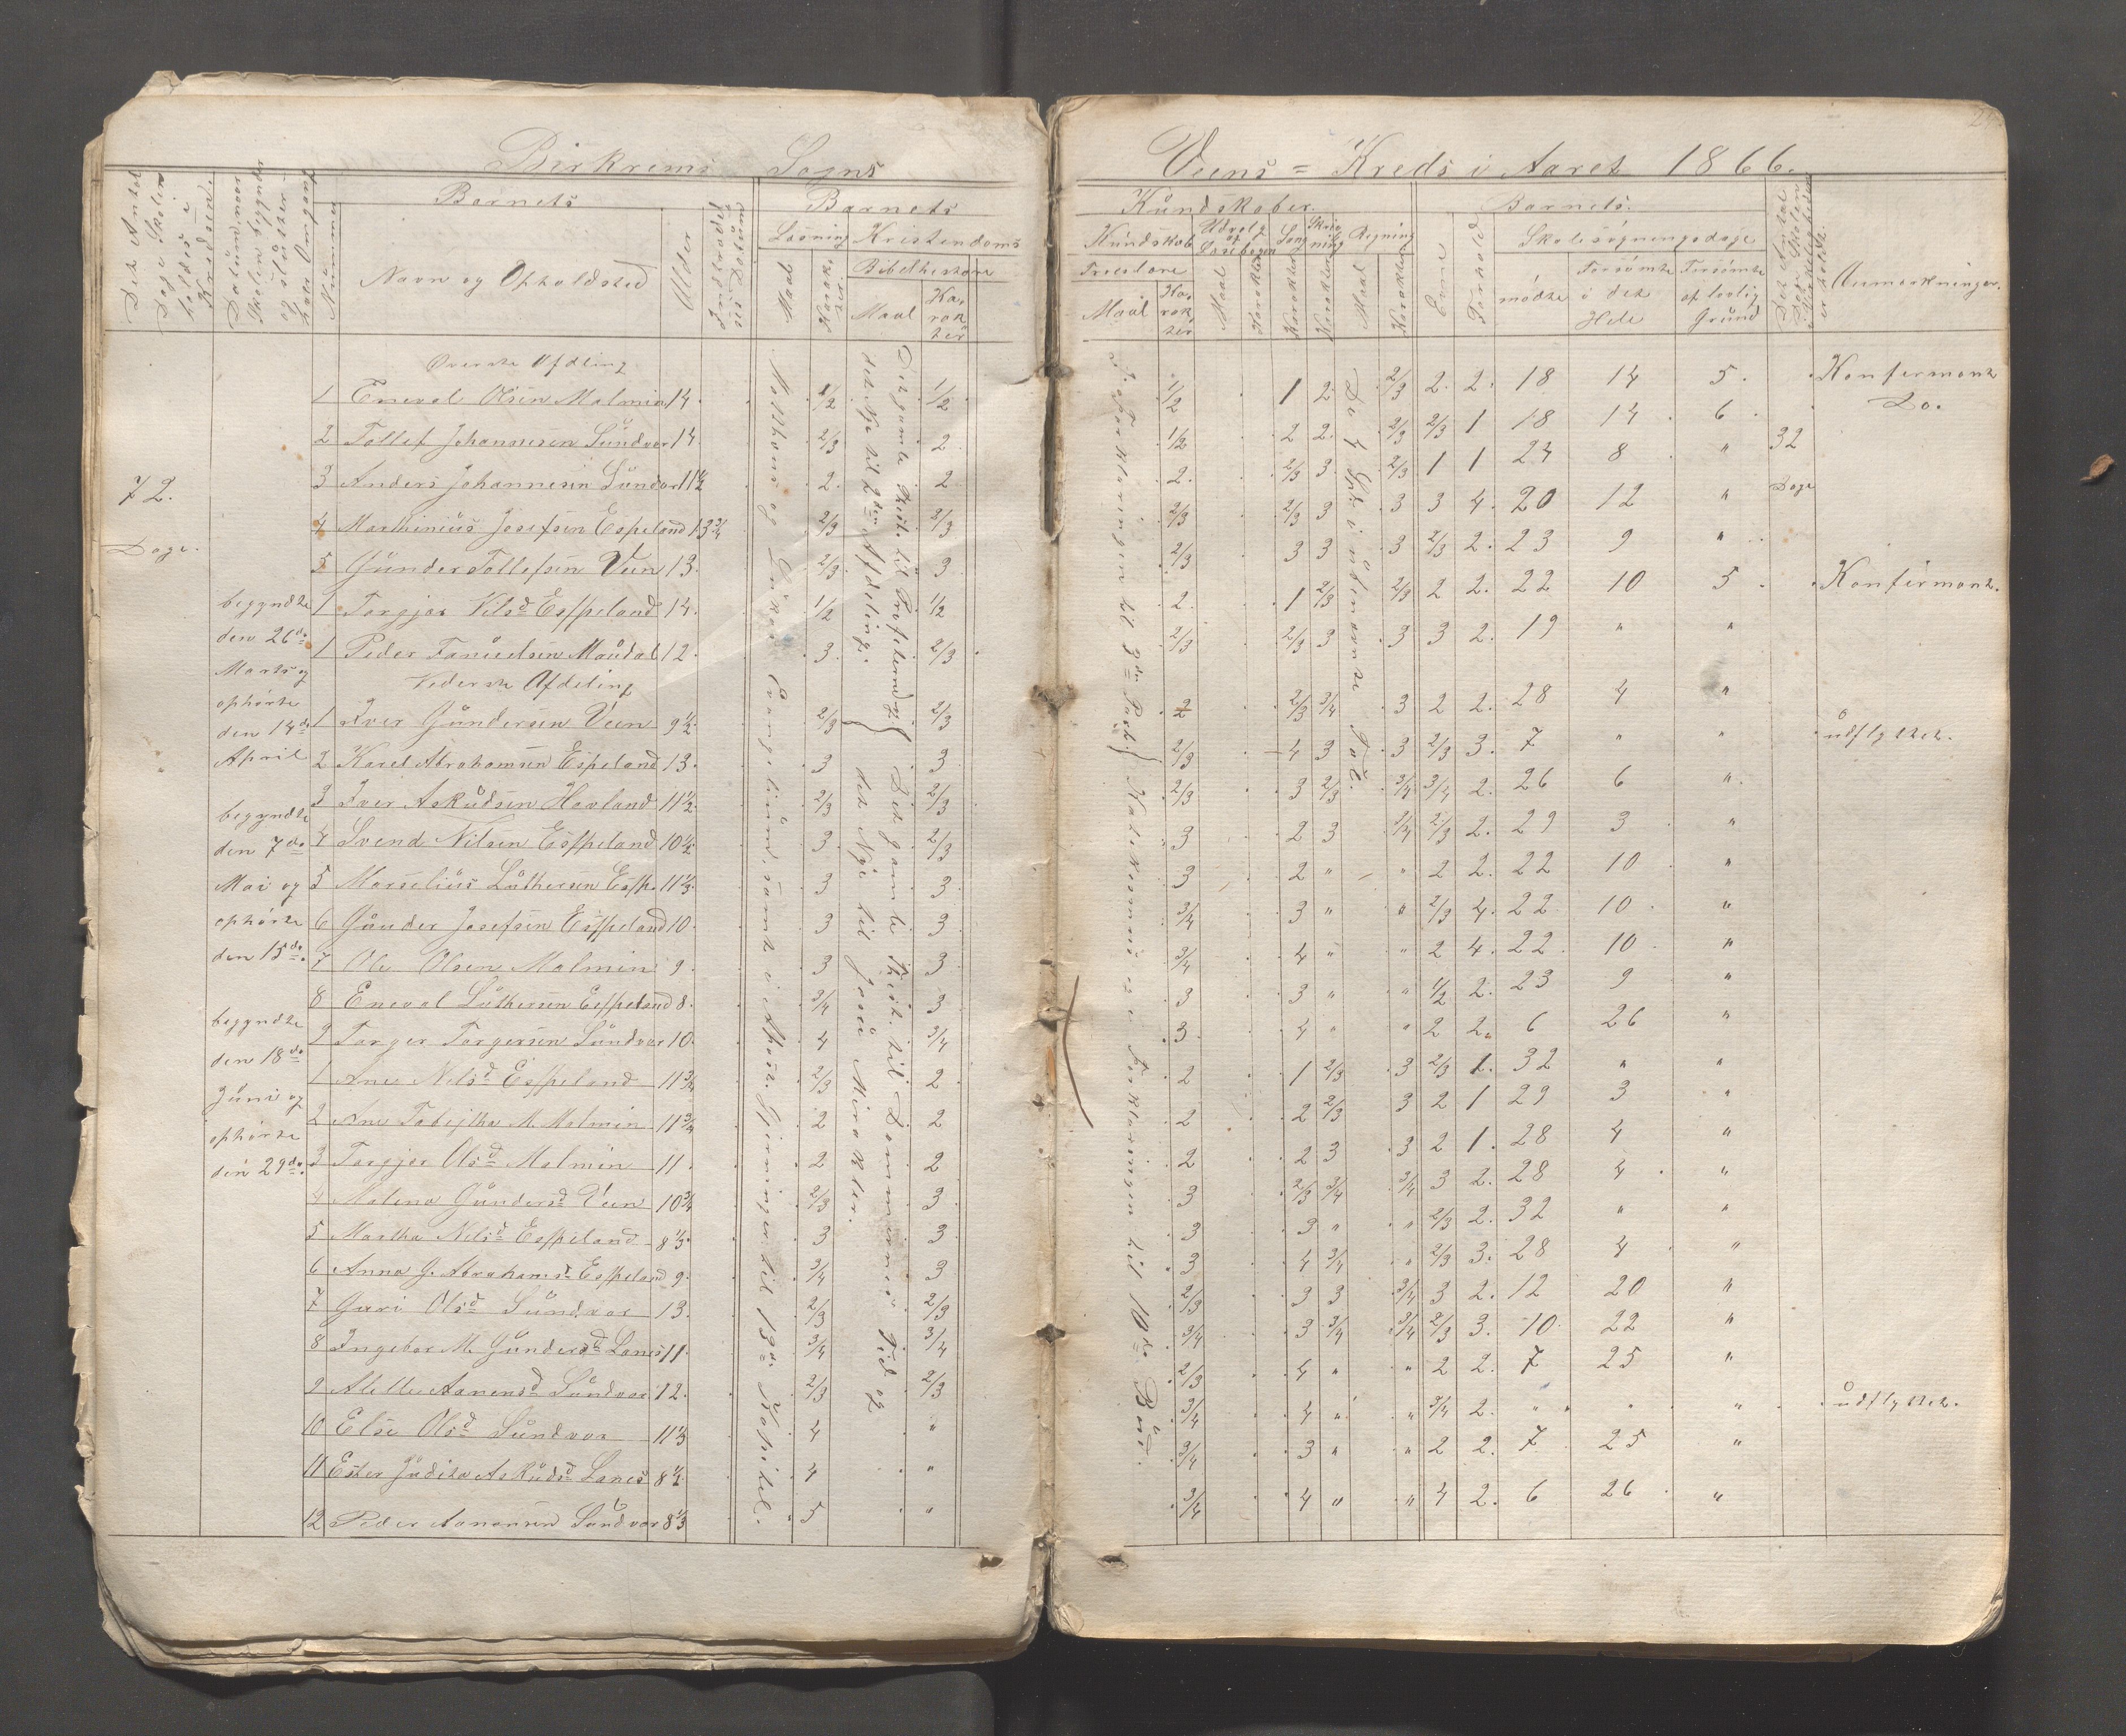 Birkrems Sogns
Det Antal Dage Skolen holdes i Kredsen.
Datum, naar Skolen begynder og slutter hver Omgang
Nummer
Barnets
Navn og Opholdsted
Alder
Indtrædelses Datum
Barnets
Læsning
Maal
Karakter
Kristendoms
Bibelhistorie
Maal
Karakter
72.
Dage.
begyndte
den 26de
Marts og
ophørte
den 14de
April
begyndte
den 7de
Mai og
ophørte
den 15de.
begyndte
den 18de
Juni og
ophørte
den 29de.
Øverste Afdeling
1 Eneval Olsen Malmin 14. 1/2 1/2
2 Tollef Johannesen Sundvor 14. 2/3 2
3 Anders Johannesen Sundvor 11 1/2 2. 2
4 Marthinius Josefsen Espeland 13 3/4 2/3 2/3
5 Gunder Tollefsen Veen 13. 2/3 3
1 Torgjer Nilsd Espeland 14. 1/2 1/2
1 Peder Tanuelsen Maudal 12. 3. 2/3
Nederste Afdeling
1 Iver Gundersen Veen 9 1/2 2/3 2/3
2 Karel Abrahamsen Espeland 13. 3 3
3 Iver Askildsen Havland 11 1/2 2/3 2/3
4 Svend Nilsen Espeland 10 1/2 3 2/3
5 Marselius Luthersen Esp. 11 1/3 3 3
6 Gunder Josefsen Espeland 10. 3 3
7 Ole Olsen Malmin 9. 3 3
8 Eneval Luthersen Espeland 8. 3/4 3
9 Torger Torgersen Sundvor 10. 4 3/4
1 Ane Nelsd Espeland 11 3/4 2/3 2
2 Ane Tabejtha M. Malmin 11 3/4 2 2
3 Torgjer Olsd Malmin 11. 2 2
4 Malena Gundersd Veen 10 3/4 2/3 3
5 Martha Nelsd Espeland 8 1/3 3 3
6 Anna G. Abrahamsd Espeland 9. 3/4 3
7 Guri Olsd Sundvor 13. 2/3 2/3
8 Ingebor M. Gundersd Lanes 11. 3/4 3/4
9 Alette Aanensd Sundvor 12. 2/3 2/3
10 Else Olsd Sundvor 11 1/3 4 "
11 Ester Judita Askildsd Lanes 8 1/2 4 "
12 Peder Aanensen Sundvor 8 1/3 5 "
Matthæus og Lukas Evangelium, samt i Apost. Gjerninger til 13de Kapitel.
Det gamle Test. til Profeterne og
det Nye til 2den Afdeling.
Det gamle Test. til Dommernes Tid og
det Nye til Jesu Mirakler.
Veens = Kreds i Aaret 1866.
Kundskaber.
Kundskab
Troeslære
Maal
Karakter
Udvalg af Læsebogen
Maal
Karakter
Sang
Karakter
Skrivning
Karakter
Regning
Maal
Karakter
Barnets.
Evne
Forhold
Skolesøgningsdage
mødte
Forsømte i det Hele
Forsømte af lovlig Grund
Det Antal Dage Skolen i Virkeligheden er holdt.
Anmærkninger.
I Forklaringen til 3die Part.
Katekismus og i Forklaringen til 10de Bud.
De 4 Sp. i ubenævnte Tal.
1/2 1 2. 2/3 2. 2. 18 14 5. Konfirmant
1/2 2 2. 2/3 2/3 1 18 14 6 Do.
2. 2/3 3. 2/3 1 1 24 8 " 32
2/3 2/3 3 3 3 4. 20 12 " Dage
2/3 3 3 3 2/3 2. 23 9 "
2. 1 2/3 2/3 2 2. 22 10 5 Konfirmant.
2/3 2/3 3 3 3 2. 19 " "
2 2/3 3/4 3 2 2. 28 4 "
2/3 4 3 3 2/3 3. 7 " " udflyttet.
2/3 3 2/3 3/4 3/4 2. 26 6 "
3 2 3 3/4 2/3 2. 29 3 "
3 2 " " 2 2. 22 10 "
3/4 3 " " 2/3 4. 22 10 "
3/4 4 " " 2 4. 22. 10 "
3 3 " " 1/2 2. 23 9 "
3. 4 " " 2 2. 6 26 "
2 1 2/3 3 2/3 1. 32 " "
2 2 2/3 3 2 1 29 3 "
2 2 3 3 2 1. 28 4 "
3 2/3 3/4 3/4 3 2. 28 4 "
3 3 " " 2/3 2. 32 " "
3 4 3/4 " 2/3 3. 28 4 "
2/3 3 3 3/4 3 2. 12 20 "
3/4 3 3/4 3/4 2/3 3. 10 22 "
2/3 4 " " 2 2. 7 25 "
3/4 4 " " 3/4 2. " " " udflyttet.
3/4 3 " " 2 2. 7 25 "
3/4 4 " " 4 2. 6 26 "